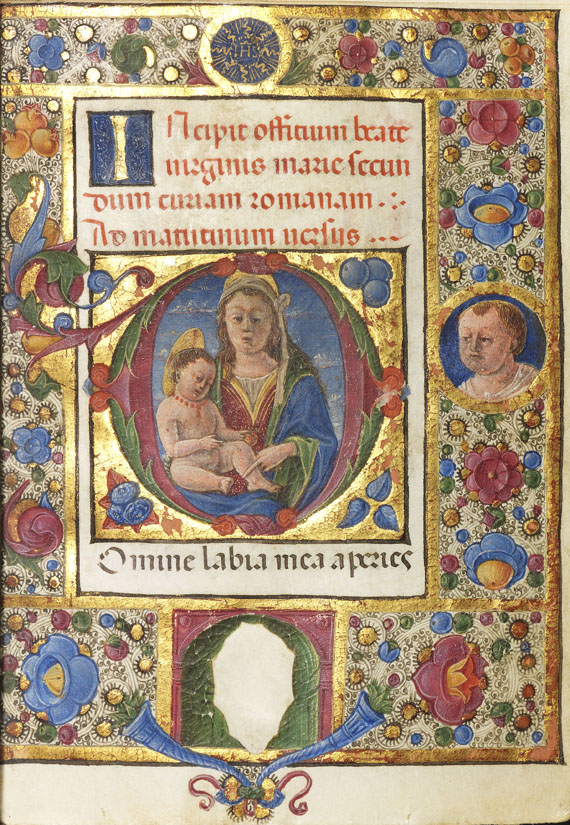 IHS
INcipit offitium beate
uirginis marie secun
dum curiam romanam .:.
Ad matutinum uersus ...
Omine labia mea aperies